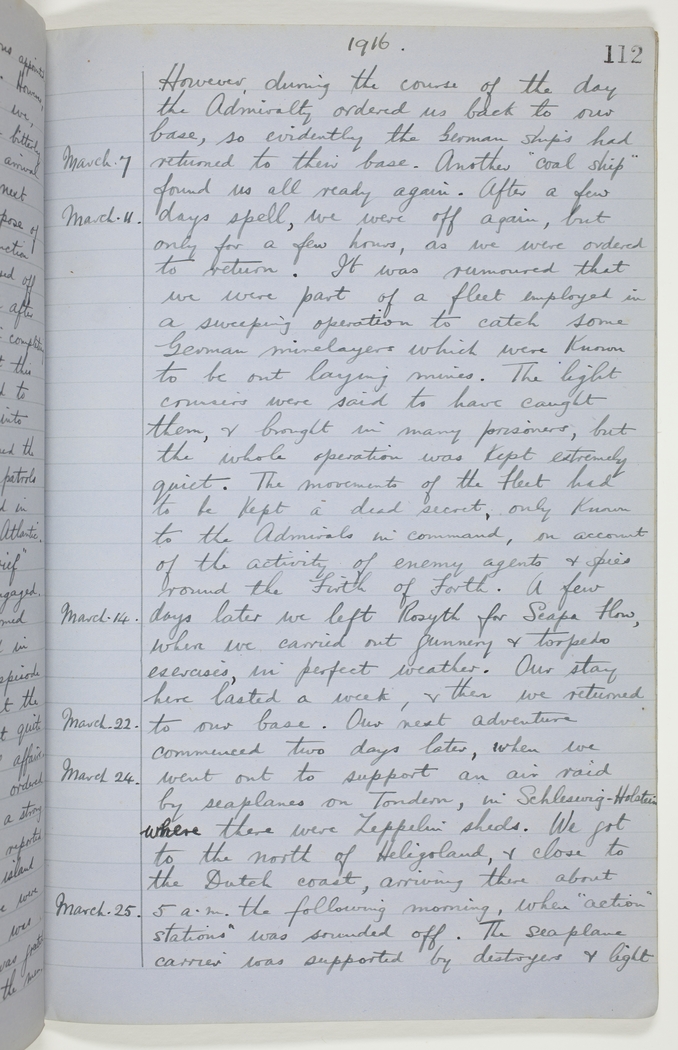 1916.
112
However, during the course of the day
the Admiralty ordered us back to our
base, so evidently the German ships had
March. 7 returned to their base. Another "coal ship"
found us all ready again. After a few
March. 11. days spell, we were off again, but
only for a few hours, as we were ordered
to return. It was rumoured that
we were part of a fleet employed in
a sweeping operation to catch some
German minelayers which were Known
to be out laying mines. The light
cruisers were said to have caught
them, & brought in many prisoners, but
the whole operation was Kept extremely
quiet. The movements of the Fleet had
to be Kept a dead secret, only Known
to the Admirals in command, on account
of the activity of enemy agents & spies
round the Firth of Forth. A few
March. 14. days later we left Rosyth for Scapa Flow,
when we carried out gunnery & torpedo
exercises, in perfect weather. Our stay
here lasted a week, & then we returned
March. 22. to our base. Our next adventure
commenced two days later, when we
March 24. went out to support an air raid
by seaplanes on Tondern, in Schleswig-Holstein
where there were Zeppelin sheds. We got
to the north of Heligoland, & close to
the Dutch coast, arriving there about
March. 25. 5 a.m. the following morning, when "action
stations" was sounded off. The seaplane
carrier was supported by destroyers & light